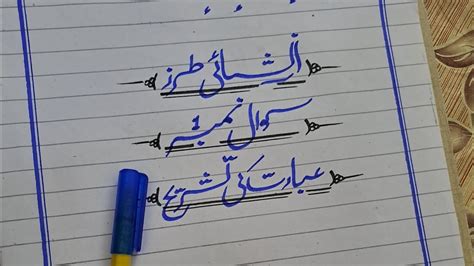 انشائی طرز
سوال نمبر 1
عبارت کی تشریح